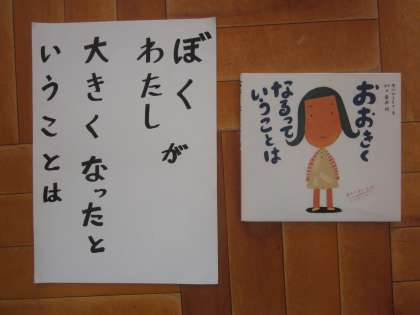 ぼく
わたし
が
大きくなったと
いうことは
おおきく
なるって
いうことは